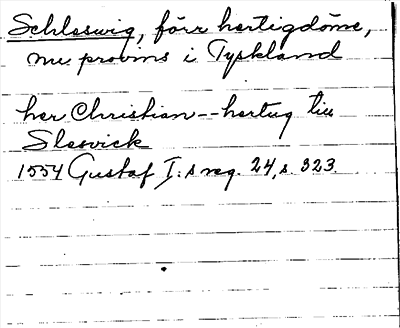 Schleswig, förr hertigdöme,
nu provins i Tyskland
her Christian -- hertug till
Slesvick
1554 Gustaf I:s reg. 24, s. 323.